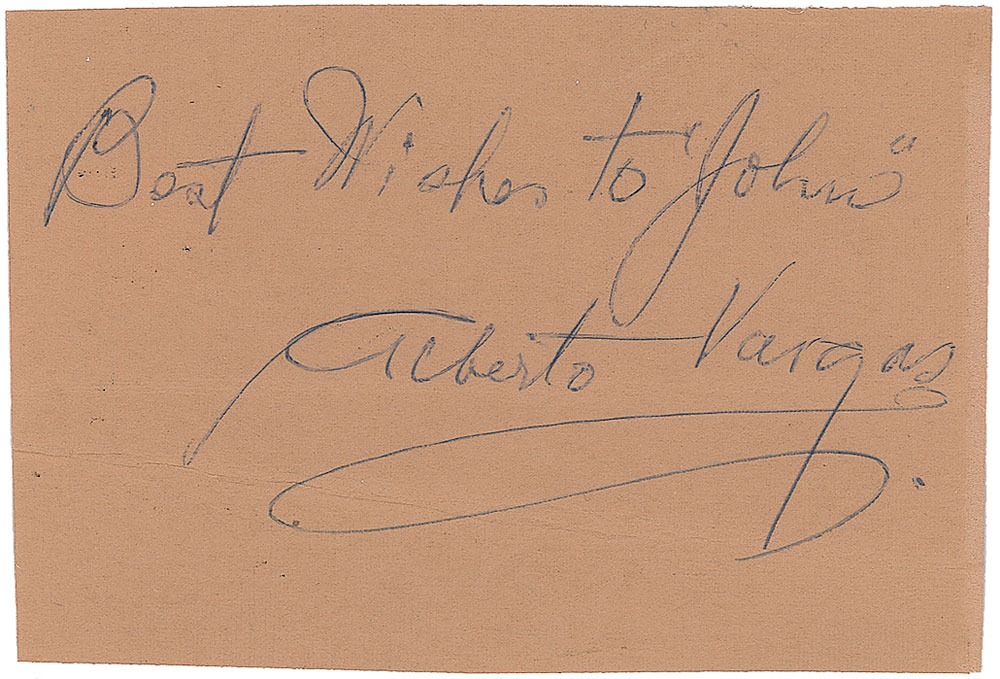 Best Wishes to "John"
Alberto Vargas.